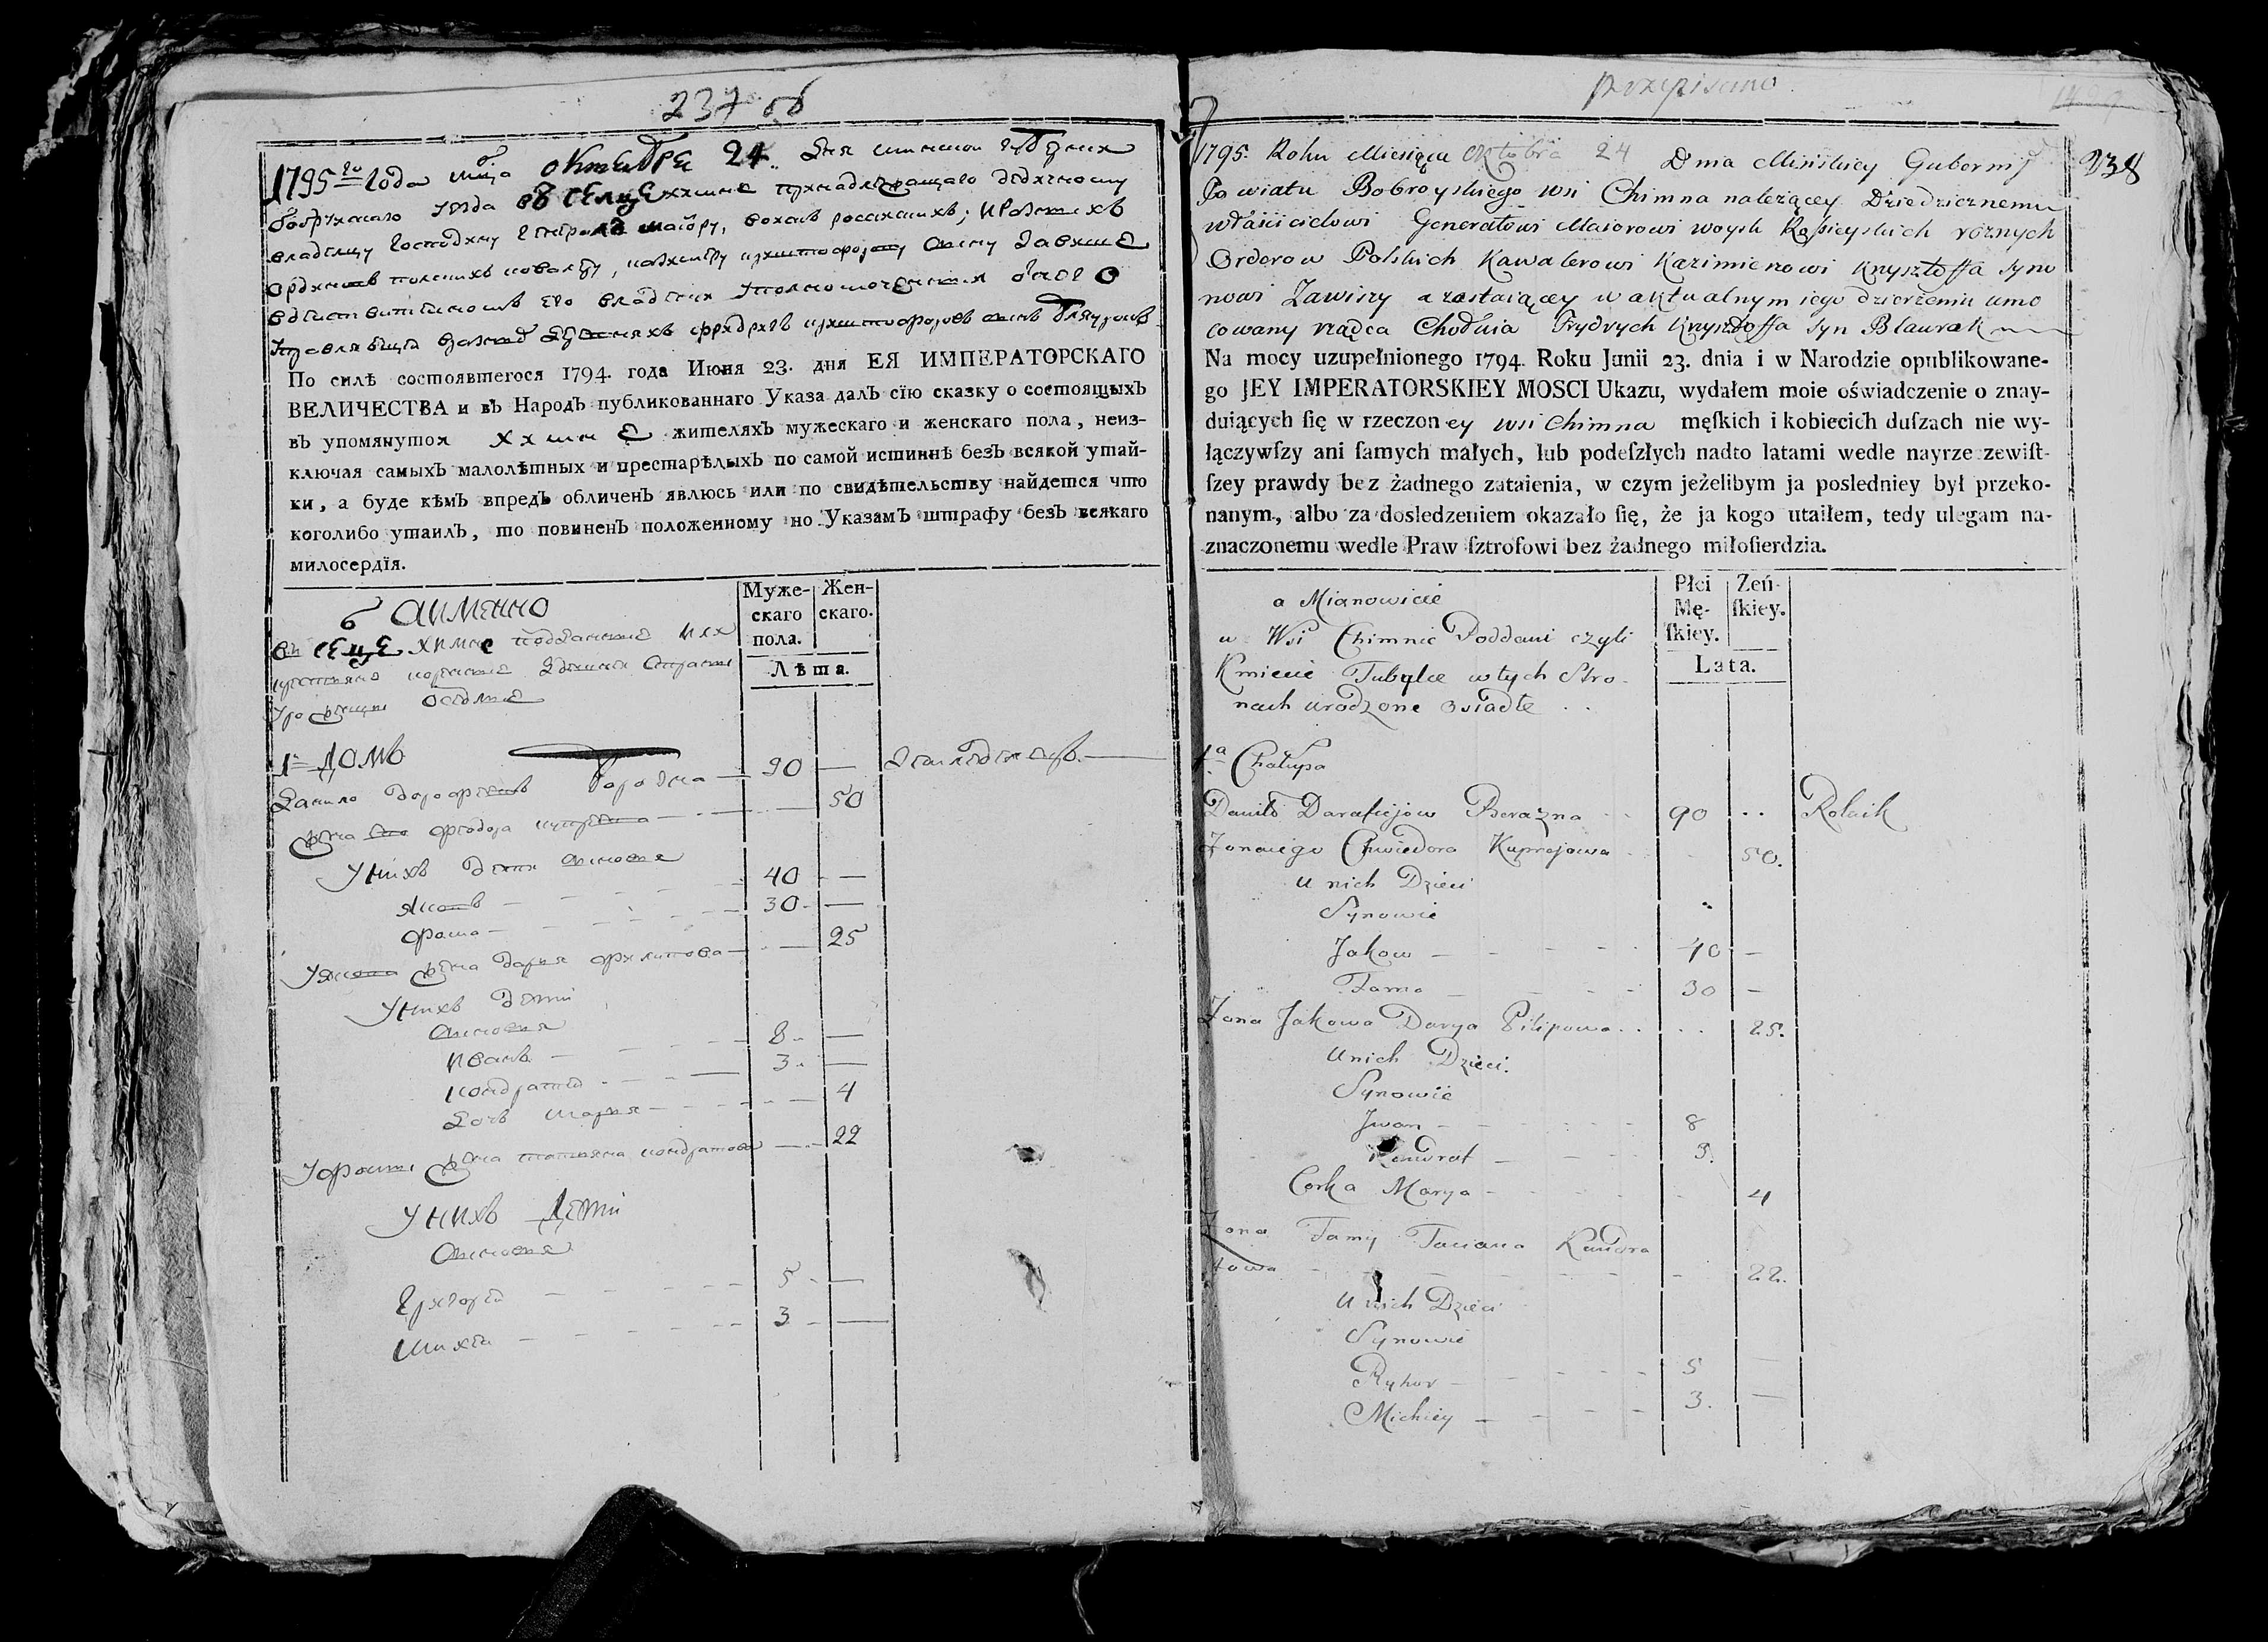 237 об
1795го Года мца октебре 24 дня минской губернии
бобруйскаго уезда в селце химне принадлежащаго дедичному
владелцу Господину Генерал маиору, войск российских, и разных
орденов полских кавалеру, казимеру криштофору сыну завише
в действителном его владении уполномоченный
По силѣ состоявшегося 1794. года Июня 23. дня ЕЯ ИМПЕРАТОРСКАГО
ВЕЛИЧЕСТВА и въ Народъ публикованнаго Указа далъ сїю сказку о состоящыхъ
въ упомянутоя химне жителяхъ мужескаго и женскаго пола, неиз-
ключая самыхъ малолѣтных и престарѣлыхъ по самой истиннѣ безъ всякой утай-
ки, а буде кѣмъ впредъ обличенъ явлюсь или по свидѣтельству найдется что
коголибо утаилъ, то повиненъ положенному по Указамъ штрафу безъ всякаго
милосердїя.
Муже-
скаго
пола.
Жен-
скаго.
Лѣта.
а имянно
в селце химне подданые или
крестяне
оседлые
1й домъ
Данило Дорофеевъ 90 — земледелецъ
жена его феодора 50
У них дети сынове
Яковъ 40 —
фома 30 —
У Якова жена дария филипова 25
У них дети
сыновя
иванъ 8 —
кондратей 3 —
дочь мария 4
У фоми жена татияна кондратова 22
У нихъ дети
сыновя
Григорей 5 —
михей 3 —
przepisano
238
1795. Roku Miesiąca Oktobra 24 Dnia Minskiey Gubernij
Powiatu Bobroyskiego wsi Chimna należącey Dziedzicznemu
właścicielowi Generałowi Maiorowi woysk Rossieyskich roznych
Orderow Polskich Kawalerowi Kazimierowi Krysztoffa syno
nowi Zawiszy a zostaiącey w aktualnym iego dzierzeniu umo
cowany rządca Chodnia Frydrych Krysztoffa syn Blaurak
Na mocy uzupełnionego 1794. Roku Junii 23. dnia i w Narodzie opublikowane-
go JEY IMPERATORSKIEY MOSCI Ukazu, wydałem moie oświadczenie o znay-
duiących ſię w rzeczoney wsi Chimna męſkich i kobiecich duſzach nie wy-
łączywſzy ani ſamych małych, lub podeſzłych nadto latami wedle nayrzezewiſt-
ſzey prawdy bez żadnego zataienia, w czym jeżelibym ja posledniey był przeko-
nanym, albo za dosledzeniem okazało ſię, że ja kogo utaiłem, tedy ulegam na-
znaczonemu wedle Praw ſztrofowi bez żadnego miłoſierdzia.
Płci
Mę-
ſkiey.
Zeń-
ſkiey.
Lata.
a Mianowicie
w Wsi Chimnie Poddani czyli
Kmiecie Tubylce w tych Stro-
nach urodzone osiadłe
1a Chałupa
Daniło Darafiejow Berazna 90 Rolnik
Zona iego Chwiedora Kuprejowa 50.
u nich Dzieci
Synowie
Jakow 40 —
Fama 30 —
Zona Jakowa Darya Pilipowa 25.
U nich Dzieci.
Synowie
Jwan 8
Kandrat 3.
Corka Marya 4
Zona Famy Taciana Kandra
towa 22.
U nich Dzieci
Synowie
Ryhor 5 —
Michiey 3. —